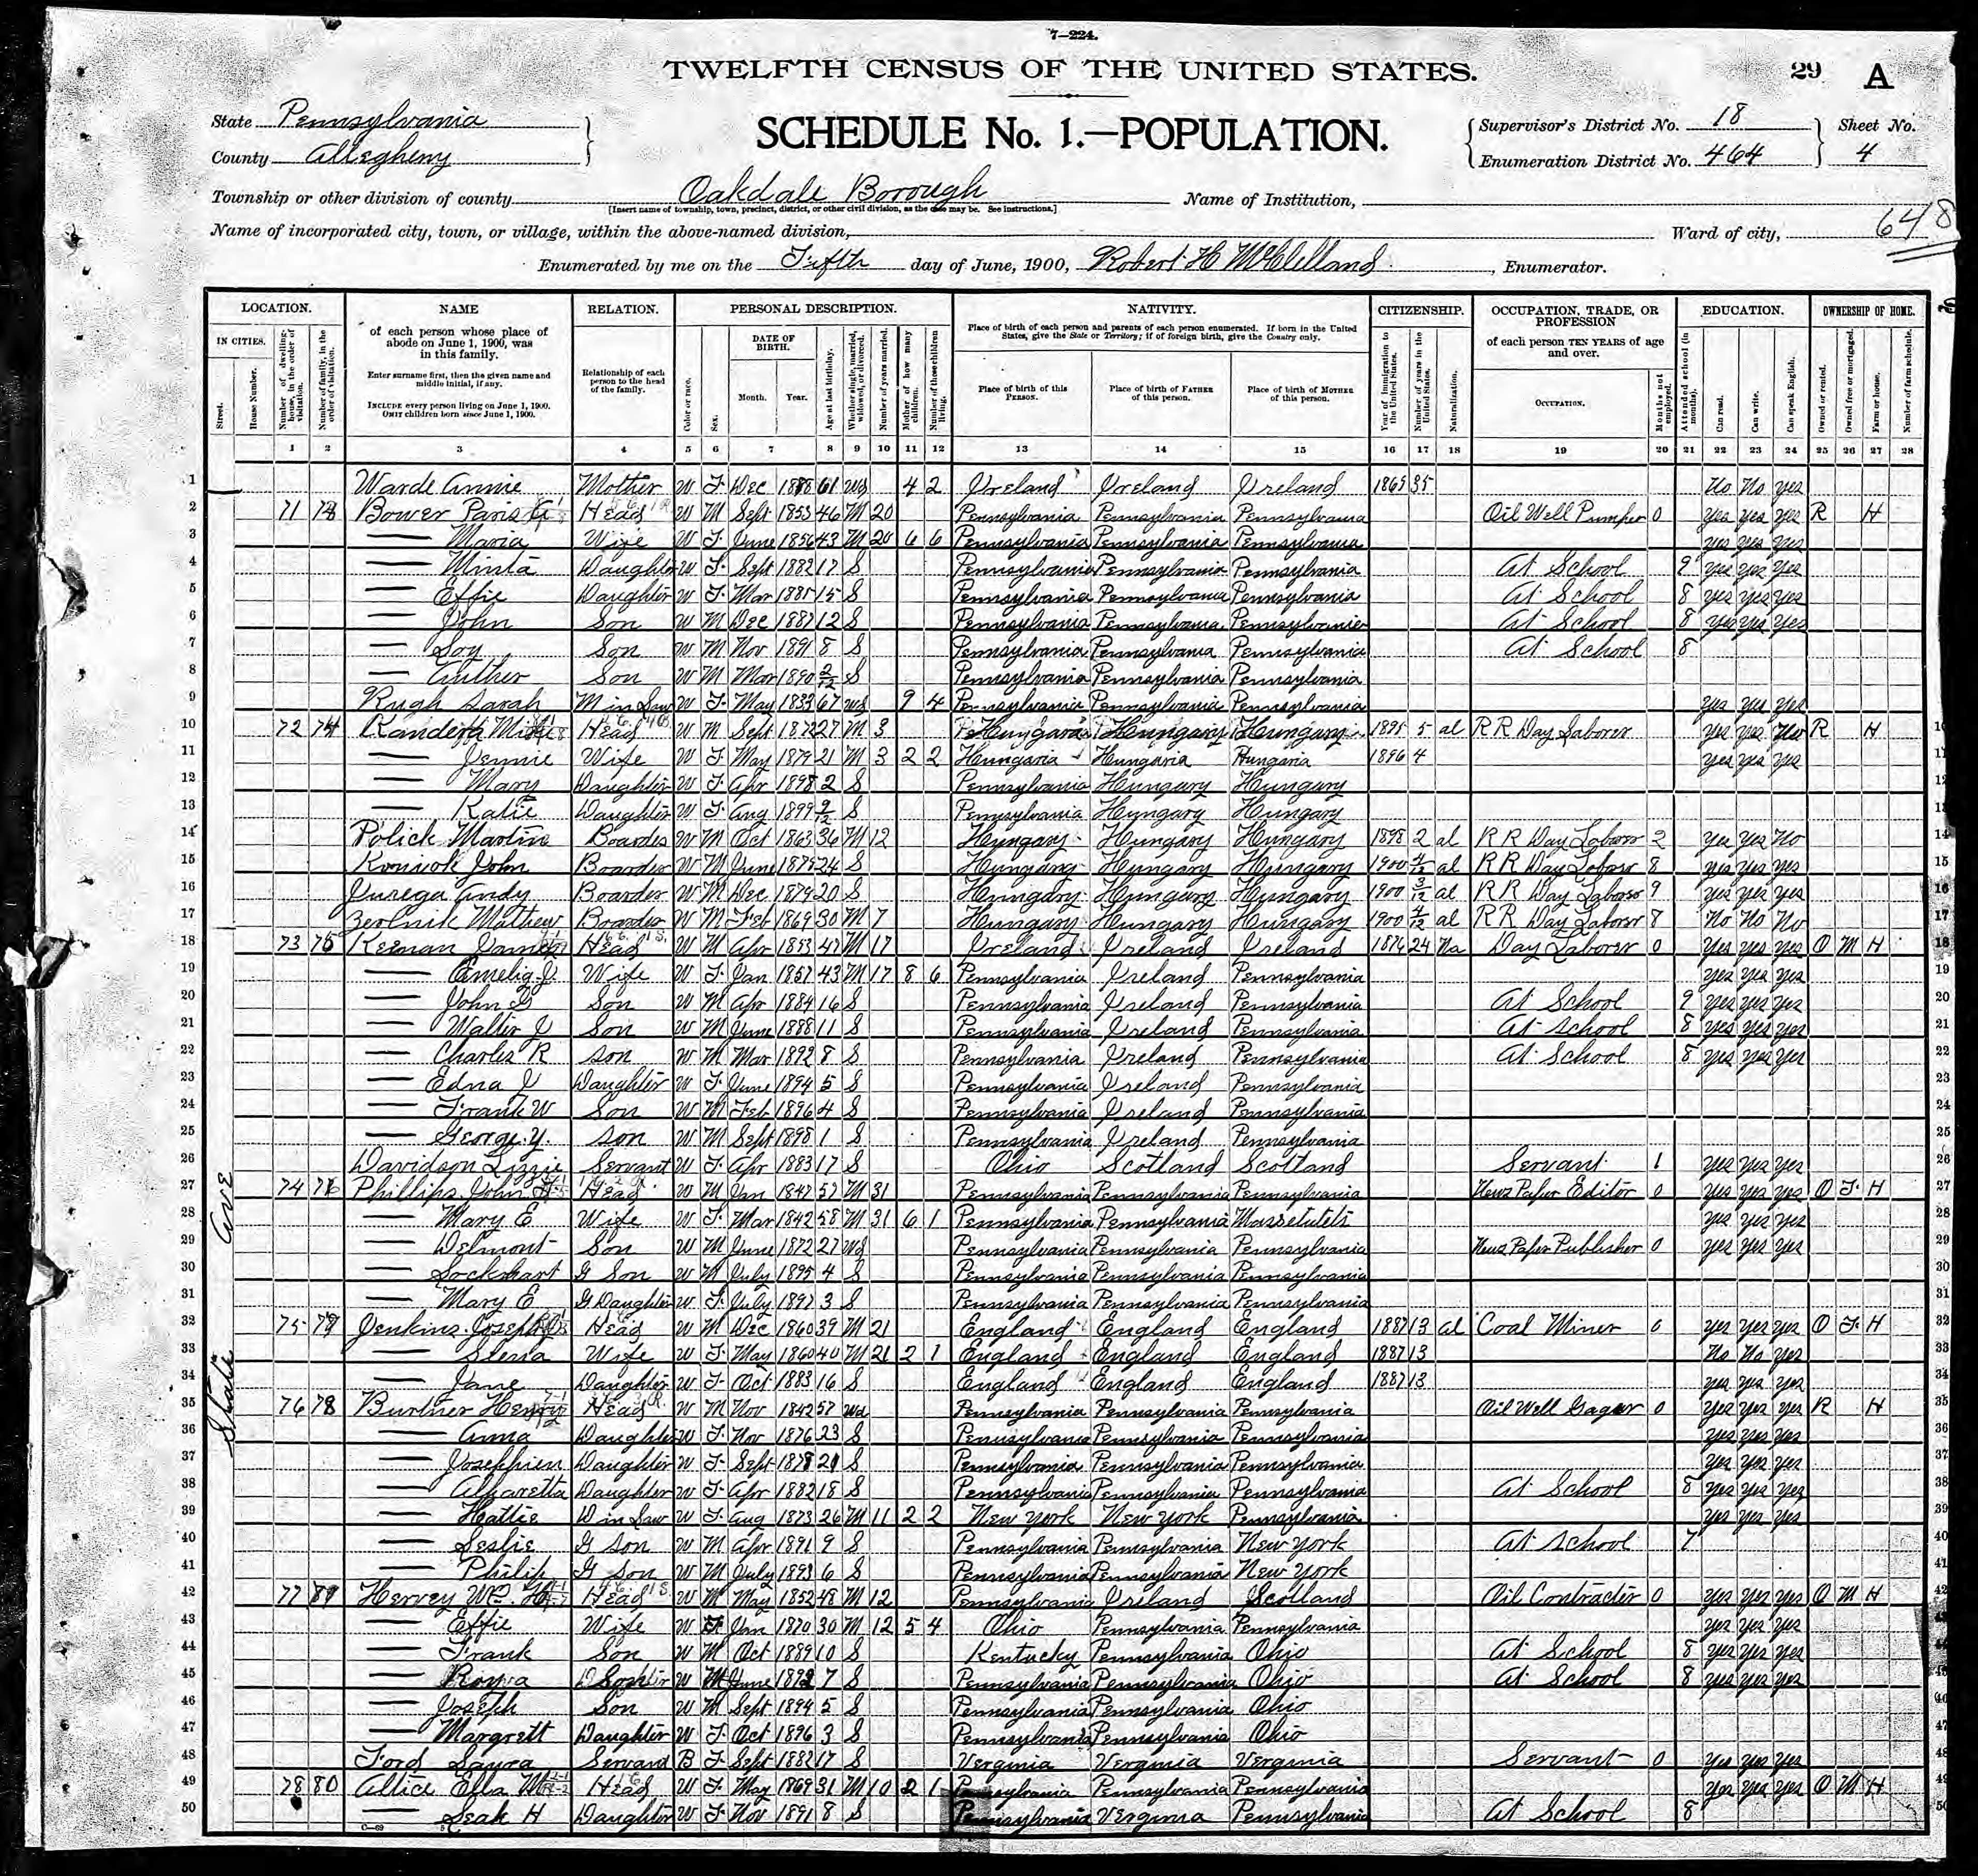 7—224.
TWELFTH CENSUS OF THE UNITED STATES.
29 A
State Pennsylvania
County Allegheny
SCHEDULE No. 1.—POPULATION.
Supervisor's District No. 18
Enumeration District No. 464
Sheet No. 4
Township or other division of county Oakdale Borough
[Insert name of township, town, precinct, district, or other civil division, as the case may be. See instructions.]
Name of Institution,
Name of incorporated city, town, or village, within the above-named division,
Ward of city,
648
Enumerated by me on the Fifth day of June, 1900, Robert H McClelland, Enumerator.
LOCATION. NAME RELATION. PERSONAL DESCRIPTION. NATIVITY. CITIZENSHIP. OCCUPATION, TRADE, OR PROFESSION EDUCATION. OWNERSHIP OF HOME.
IN CITIES. Street. House Number. Number of dwelling-house, in the order of visitation. Number of family, in the order of visitation.
of each person whose place of abode on June 1, 1900, was in this family.
Enter surname first, then the given name and middle initial, if any.
INCLUDE every person living on June 1, 1900. OMIT children born since June 1, 1900.
Relationship of each person to the head of the family.
Color or race. Sex. DATE OF BIRTH. Month. Year. Age at last birthday. Whether single, married, widowed, or divorced. Number of years married. Mother of how many children. Number of these children living.
Place of birth of each person and parents of each person enumerated. If born in the United States, give the State or Territory; if of foreign birth, give the Country only.
Place of birth of this PERSON. Place of birth of FATHER of this person. Place of birth of MOTHER of this person.
Year of immigration to the United States. Number of years in the United States. Naturalization.
of each person TEN YEARS of age and over.
OCCUPATION. Months not employed.
Attended school (in months). Can read. Can write. Can speak English.
Owned or rented. Owned free or mortgaged. Farm or house. Number of farm schedule.
1 2 3 4 5 6 7 8 9 10 11 12 13 14 15 16 17 18 19 20 21 22 23 24 25 26 27 28
State Ave
1 Warde Annie Mother W F Dec 61 Wd 4 2 Ireland Ireland Ireland 1865 35 No No yes
2 71 Bower Paris G Head W M Sept 1853 46 M 20 Pennsylvania Pennsylvania Pennsylvania Oil Well Pumper 0 yes yes yes R H
3 — Maria Wife W F June 1856 43 M 20 6 6 Pennsylvania Pennsylvania Pennsylvania yes yes yes
4 — Minta Daughter W F Sept 1882 17 S Pennsylvania Pennsylvania Pennsylvania At School 9 yes yes yes
5 — Effie Daughter W F Mar 1885 15 S Pennsylvania Pennsylvania Pennsylvania At School 8 yes yes yes
6 — John Son W M Dec 1887 12 S Pennsylvania Pennsylvania Pennsylvania At School 8 yes yes yes
7 — Son W M Nov 1891 8 S Pennsylvania Pennsylvania Pennsylvania At School 8
8 — Auther Son W M Mar 1890 2/12 S Pennsylvania Pennsylvania Pennsylvania
9 Rugh Sarah M in Law W F May 1833 67 Wd 9 4 Pennsylvania Pennsylvania Pennsylvania yes yes yes
10 72 74 Mike Head W M Sept 1872 27 M 3 Hungary Hungary 1895 5 al R R Day Laborer yes yes No R H
11 — Jennie Wife W F May 1879 21 M 3 2 2 Hungaria Hungaria Hungaria 1896 4 yes yes yes
12 — Mary Daughter W F Apr 1898 2 S Pennsylvania Hungary Hungary
13 — Katie Daughter W F Aug 1899 9/12 S Pennsylvania Hungary Hungary
14 Polick Martin Boarder W M Oct 1863 36 M 12 Hungary Hungary Hungary 1898 2 al R R Day Laborer 2 yes yes No
15 John Boarder W M June 1875 24 S Hungary Hungary Hungary 1900 4/12 al R R Day Laborer 8 yes yes yes
16 Jurega Andy Boarder W M Dec 1879 20 S Hungary Hungary Hungary 1900 3/12 al R R Day Laborer 9 yes yes yes
17 Zerlnik Mathew Boarder W M Feb 1869 30 M 7 Hungary Hungary Hungary 1900 al R R Day Laborer 8 No No No
18 73 75 Keenan James Head W M Apr 1853 47 M 17 Ireland Ireland Ireland 1876 24 Na Day Laborer 0 yes yes yes O M H
19 — Emelia J Wife W F Jan 1857 43 M 17 8 6 Pennsylvania Ireland Pennsylvania yes yes yes
20 — John Son W M Apr 1884 16 S Pennsylvania Ireland Pennsylvania At School 9 yes yes yes
21 — Walter J Son W M June 1888 11 S Pennsylvania Ireland Pennsylvania At school 8 yes yes yes
22 — Charles R son W M Mar 1892 8 S Pennsylvania Ireland Pennsylvania At School 8 yes yes yes
23 — Edna J Daughter W F June 1894 5 S Pennsylvania Ireland Pennsylvania
24 — Frank W Son W M Feb 1896 4 S Pennsylvania Ireland Pennsylvania
25 — George Y. son W M Sept 1898 1 S Pennsylvania Ireland Pennsylvania
26 Davidson Lizzie Servant W F Apr 1883 17 S Ohio Scotland Scotland Servant 1 yes yes yes
27 74 76 Phillips John Head W M Jan 1847 M 31 Pennsylvania Pennsylvania Pennsylvania News Paper Editor 0 yes yes yes O F H
28 — Mary E Wife W F Mar 1842 58 M 31 6 1 Pennsylvania Pennsylvania Massetutets yes yes yes
29 — Delmont Son W M June 1872 27 Wd Pennsylvania Pennsylvania Pennsylvania News Paper Publisher 0 yes yes yes
30 — Lockhart G Son W M July 1895 4 S Pennsylvania Pennsylvania Pennsylvania
31 — Mary E G Daughter W F July 1897 3 S Pennsylvania Pennsylvania Pennsylvania
32 75 77 Jenkins Joseph Head W M Dec 1860 39 M 21 England England England 1887 13 al Coal Miner 0 yes yes yes O F H
33 — Wife W F May 1860 40 M 21 2 1 England England England 1887 13 No No yes
34 — Jane Daughter W F Oct 1883 16 S England England England 1887 13 yes yes yes
35 76 78 Burtner Henry Head W M Nov 1842 57 Wd Pennsylvania Pennsylvania Pennsylvania Oil Well Gager 0 yes yes yes R H
36 — Anna Daughter W F Nov 1876 23 S Pennsylvania Pennsylvania Pennsylvania yes yes yes
37 — Josephien Daughter W F Sept 1878 21 S Pennsylvania Pennsylvania Pennsylvania yes yes yes
38 — Alharetta Daughter W F Apr 1882 18 S Pennsylvania Pennsylvania Pennsylvania At School 8 yes yes yes
39 — Hattie D in Law W F Aug 1873 26 M 11 2 2 New York New York Pennsylvania yes yes yes
40 — Leslie G Son W M Apr 1891 9 S Pennsylvania Pennsylvania New York At school 7
41 — Philip G Son W M July 1893 6 S Pennsylvania Pennsylvania New York
42 77 Hervey Wm. H Head W M May 1852 48 M 12 Pennsylvania Ireland Scotland Oil Contracter 0 yes yes yes O M H
43 — Effie Wife W F Jan 1870 30 M 12 5 4 Ohio Pennsylvania Pennsylvania yes yes yes
44 — Frank Son W M Oct 1889 10 S Kentucky Pennsylvania Ohio At School 8 yes yes yes
45 — W June 1892 7 S Pennsylvania Pennsylvania Ohio At School 8 yes yes yes
46 — Joseph Son W M Sept 1894 5 S Pennsylvania Pennsylvania Ohio
47 — Margrett Daughter W F Oct 1896 3 S Pennsylvania Pennsylvania Ohio
48 Ford Laura Servand B F Sept 1882 17 S Verginia Verginia Verginia Servant 0 yes yes yes
49 78 80 Altice Ella M Head W F May 1869 31 M 10 2 1 Pennsylvania Pennsylvania Pennsylvania yes yes yes O M H
50 — Leah H Daughter W F Nov 1891 8 S Pennsylvania Verginia Pennsylvania At School 8